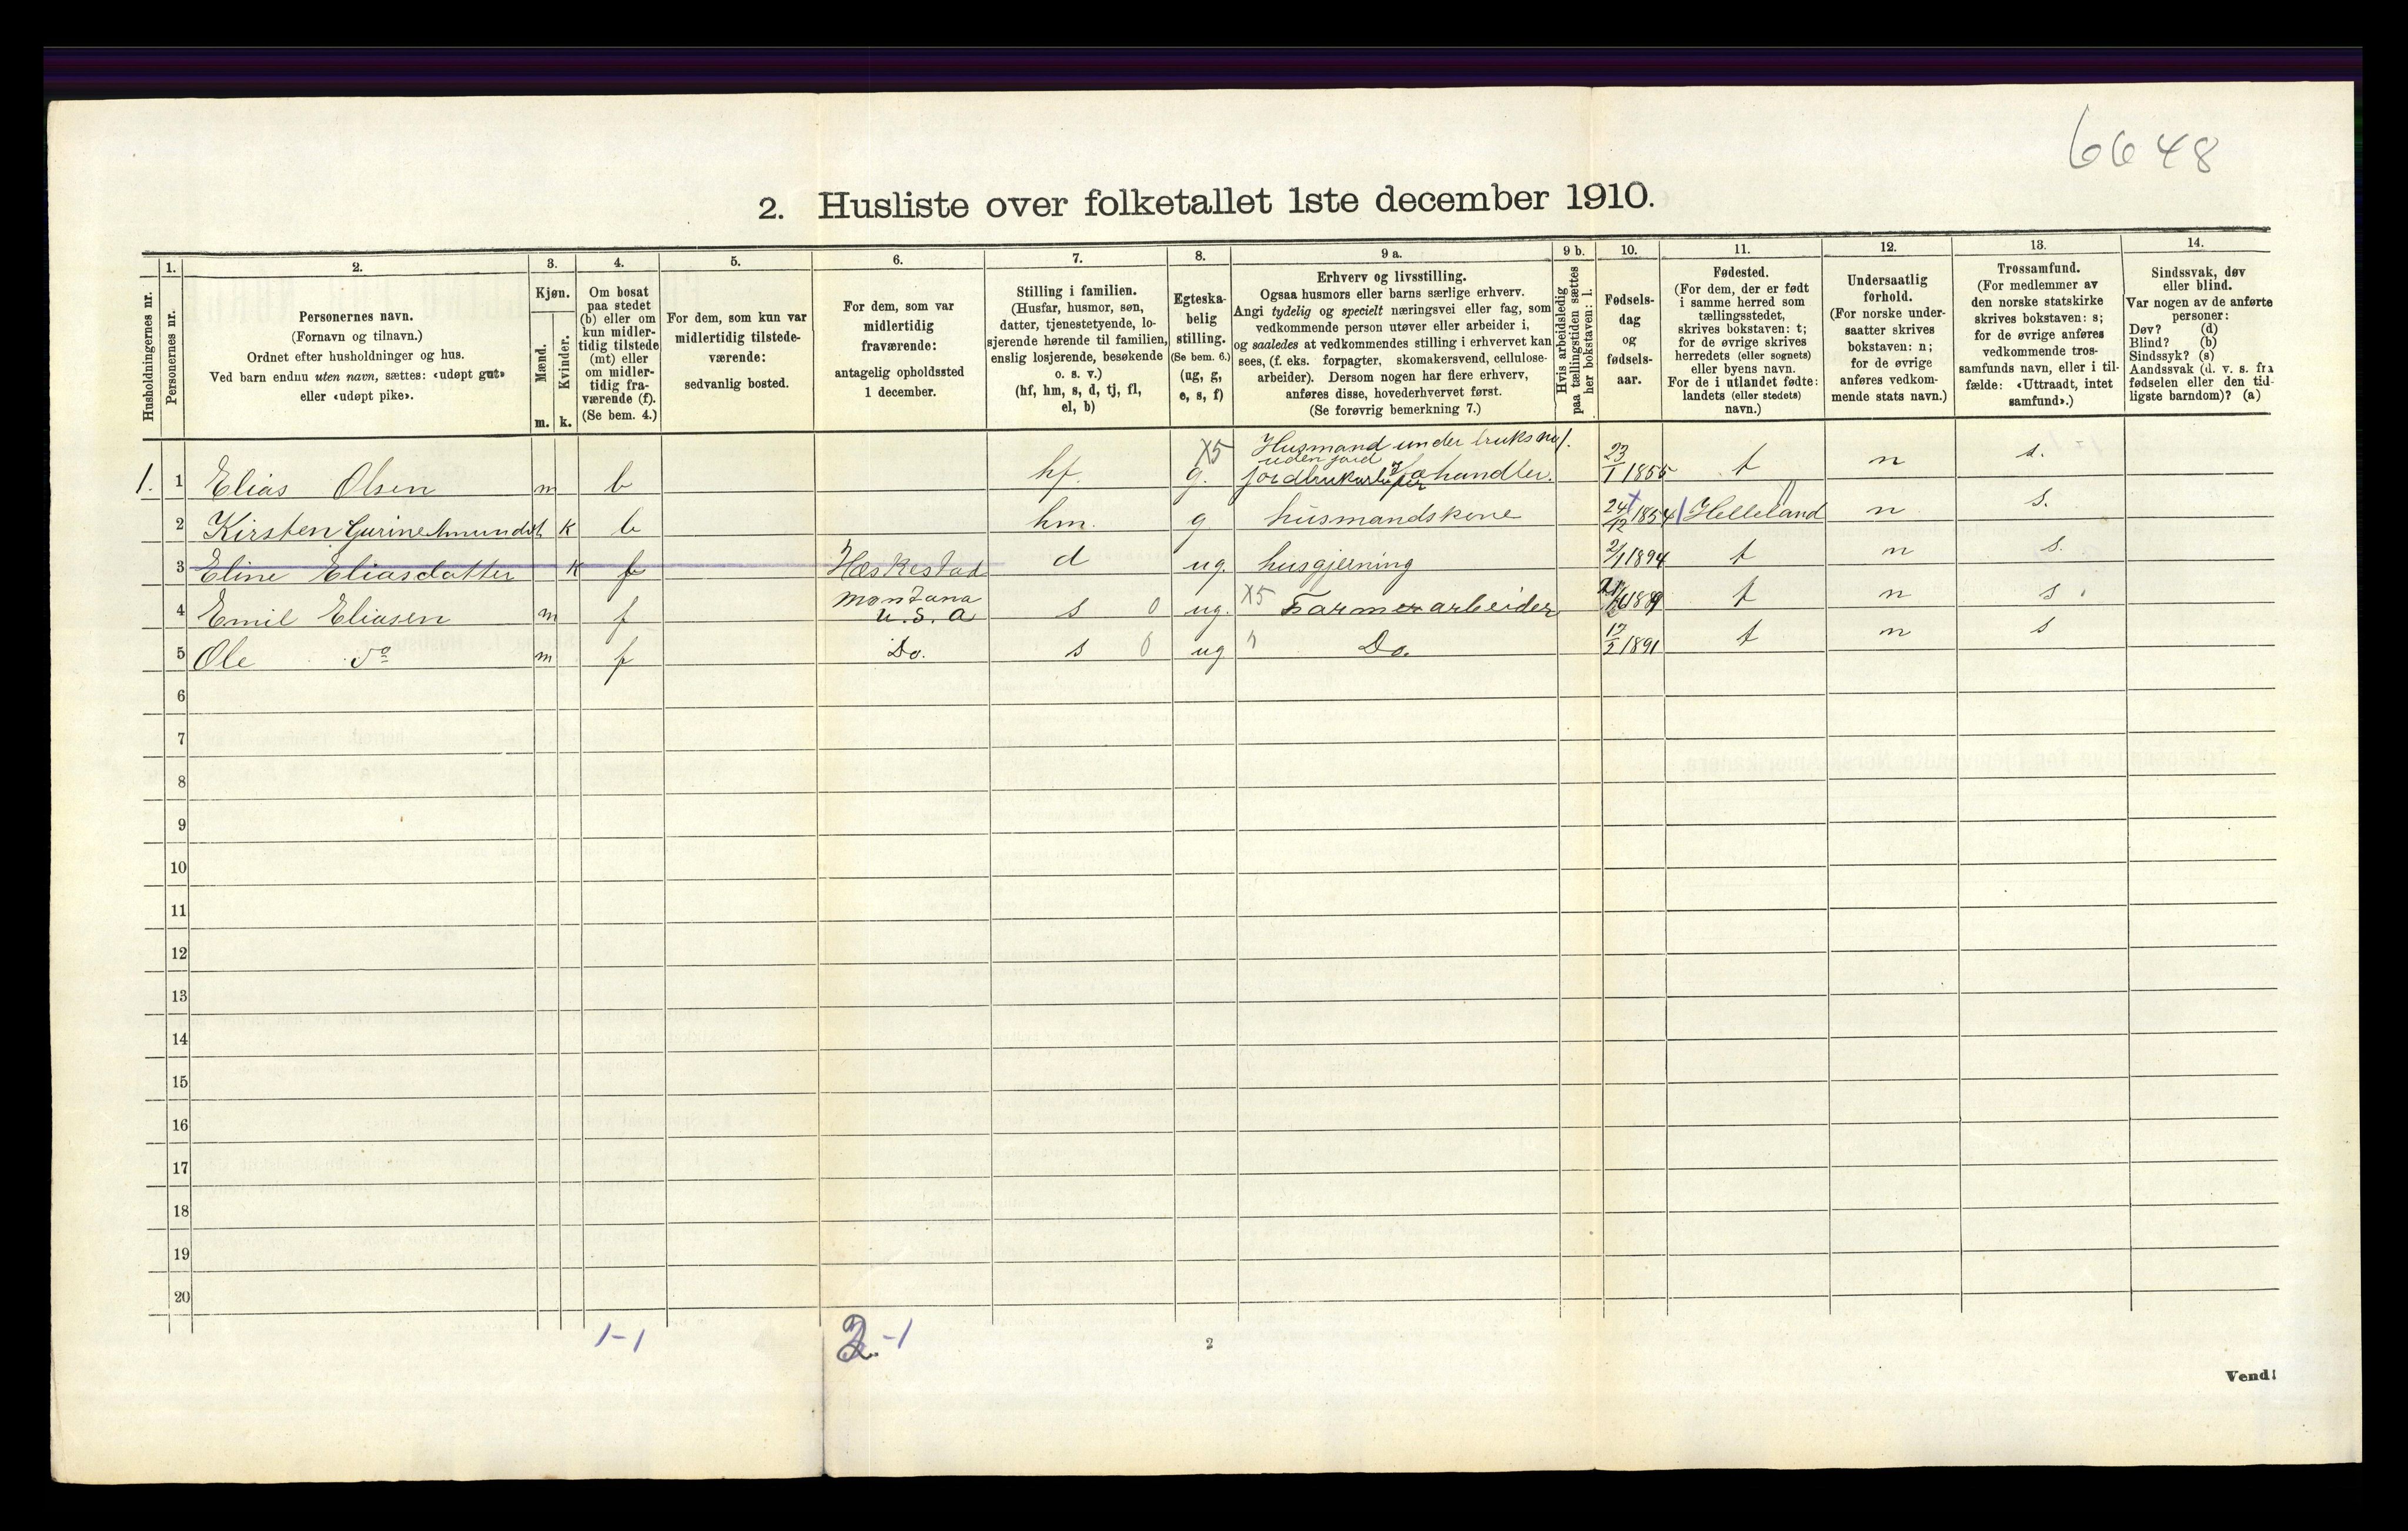 6648
2. Husliste over folketallet 1ste december 1910.
Husholdningernes nr.
1.
Personernes nr.
2.
Personernes navn.
(Fornavn og tilnavn.)
Ordnet efter husholdninger og hus.
Ved barn endnu uten navn, sættes: «udøpt gut»
eller «udøpt pike».
3.
Kjøn.
Mænd.
Kvinder.
m. k.
4.
Om bosat
paa stedet
(b) eller om
kun midler-
tidig tilstede
(mt) eller
om midler-
tidig fra-
værende (f).
(Se bem. 4.)
5.
For dem, som kun var
midlertidig tilstede-
værende:
sedvanlig bosted.
6.
For dem, som var
midlertidig
fraværende:
antagelig opholdssted
1 december.
7.
Stilling i familien.
(Husfar, husmor, søn,
datter, tjenestetyende, lo-
sjerende hørende til familien,
enslig losjerende, besøkende
o. s. v.)
(hf, hm, s, d, tj, fl,
el, b)
8.
Egteska-
belig
stilling.
(Se bem. 6.)
(ug, g,
e, s, f)
9 a.
Erhverv og livsstilling.
Ogsaa husmors eller barns særlige erhverv.
Angi tydelig og specielt næringsvei eller fag, som
vedkommende person utøver eller arbeider i,
og saaledes at vedkommendes stilling i erhvervet kan
sees, (f. eks. forpagter, skomakersvend, cellulose-
arbeider). Dersom nogen har flere erhverv,
anføres disse, hovederhvervet først.
(Se forøvrig bemerkning 7.)
9 b.
Hvis arbeidsledig
paa tællingstiden sættes
her bokstaven: l.
10.
Fødsels-
dag
og
fødsels-
aar.
11.
Fødested.
(For dem, der er født
i samme herred som
tællingsstedet,
skrives bokstaven: t;
for de øvrige skrives
herredets (eller sognets)
eller byens navn.
For de i utlandet fødte:
landets (eller stedets)
navn.)
12.
Undersaatlig
forhold.
(For norske under-
saatter skrives
bokstaven: n;
for de øvrige
anføres vedkom-
mende stats navn.)
13.
Trossamfund.
(For medlemmer av
den norske statskirke
skrives bokstaven: s;
for de øvrige anføres
vedkommende tros-
samfunds navn, eller i til-
fælde: «Uttraadt, intet
samfund».)
14.
Sindssvak, døv
eller blind.
Var nogen av de anførte
personer:
Døv? (d)
Blind? (b)
Sindssyk? (s)
Aandssvak (d. v. s. fra
fødselen eller den tid-
ligste barndom)? (a)
X5 Husmand under bruks no 1.
uden jord
1. 1 Elias Olsen m b hf. g. fæhandler. 23/1 1855 t n s.
2 Kirsten Gurine Amundsd. k b hm. g husmandskone 24/12 1854 Helleland n s.
3 Eline Eliasdatter k f Hæskestad d ug. husgjerning 2/1 1894 t n s.
4 Emil Eliasen m f Montana
U.S.A s 0 ug. X5 Farmerarbeider 1889 t n s
5 Ole do m f Do. s 0 ug " Do. 1891 t n s
6
7
8
9
10
11
12
13
14
15
16
17
18
19
20
1-1 2.-1 2
Vend!